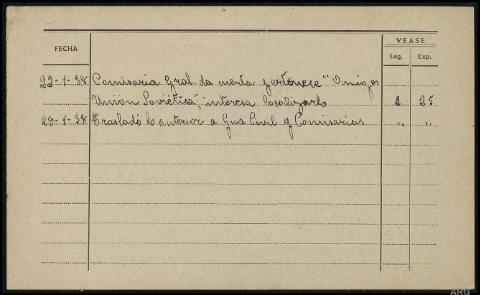 VEASE
FECHA
Leg. Exp.
22-1-38 Comisaria Gral. da cuenta pertenece "Amigos
Unión Soviética", interesa localizarlo 2 25
23-1-38 Trasladó lo anterior a Gua Civil y Comisarias " "
ARG